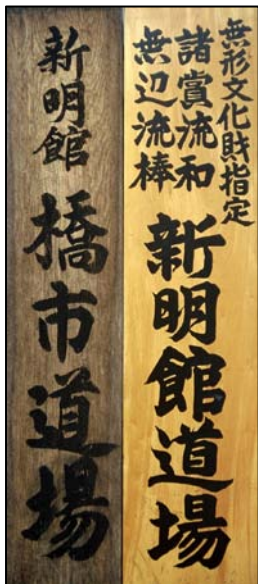 無形文化財指定
諸賞流和
無辺流棒
新明館道場
新明館
橋市道場